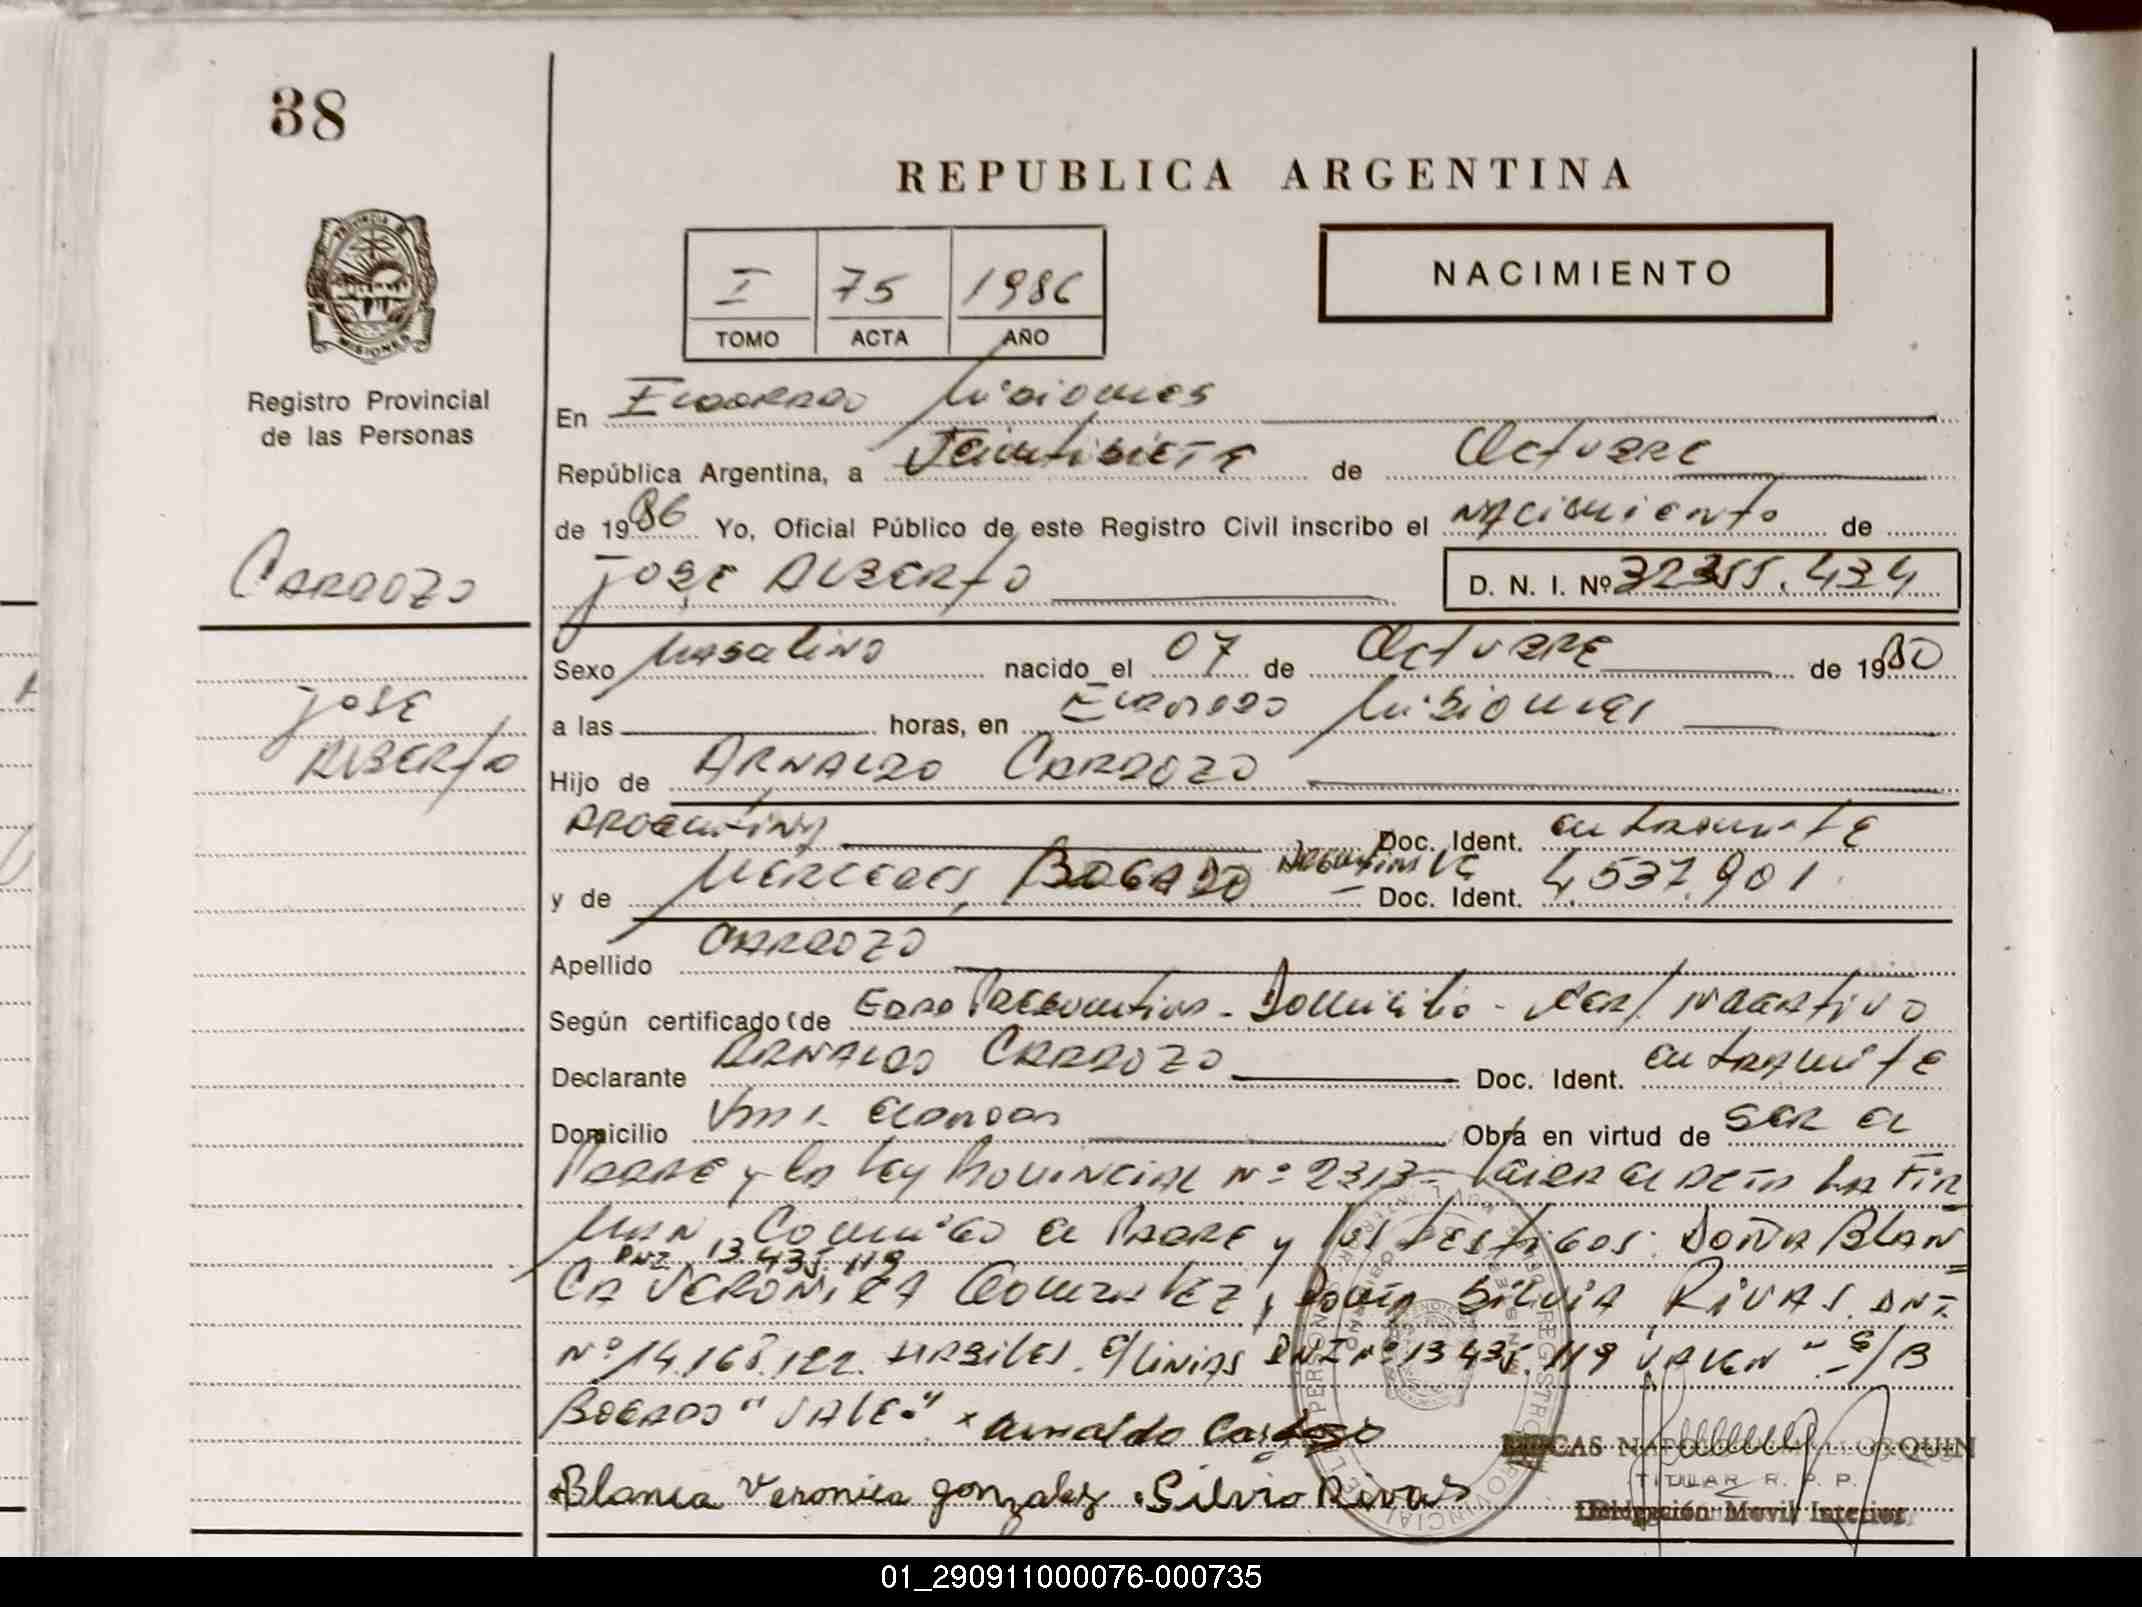 38
REPUBLICA ARGENTINA
PROVINCIA DE
MISIONES
I 75 1986
TOMO ACTA AÑO
NACIMIENTO
Registro Provincial
de las Personas
En Eldorado Misiones
República Argentina, a Veintisiete de Octubre
de 1986 Yo, Oficial Público de este Registro Civil inscribo el nacimiento de
CARDOZO
JOSE ALBERTO D. N. I. Nº 32355.434
Sexo Masculino nacido el 07 de Octubre de 1980
JOSE
ALBERTO
a las horas, en Eldorado Misiones
Hijo de ARNALDO CARDOZO
Argentina Doc. Ident. en tramite
y de Mercedes BOGADO Argentina LC Doc. Ident. 4.537.901
Apellido CARDOZO
Según certificado (de Edad Presuntiva - Domicilio - Cert/ Negativo
Declarante ARNALDO CARDOZO Doc. Ident. en tramite
Domicilio Obra en virtud de ser el
Padre y la Ley Provincial Nº 2313 - Leida el acta la fir
man, conmigo el Padre y los testigos: Doña Blan
DNI 13.435.119
ca VERONICA Gonzalez, Doña Silvia RIVAS. DNI
Nº 14.168.122. habiles. E/Linias DNI nº 13.435.119 VALEN" S/B
BOGADO "VALE" x Arnaldo Cardozo
Blanca Veronica gonzalez Silvia Rivas
TITULAR R. P. P.
Delegación Movil Interior
01_290911000076-000735